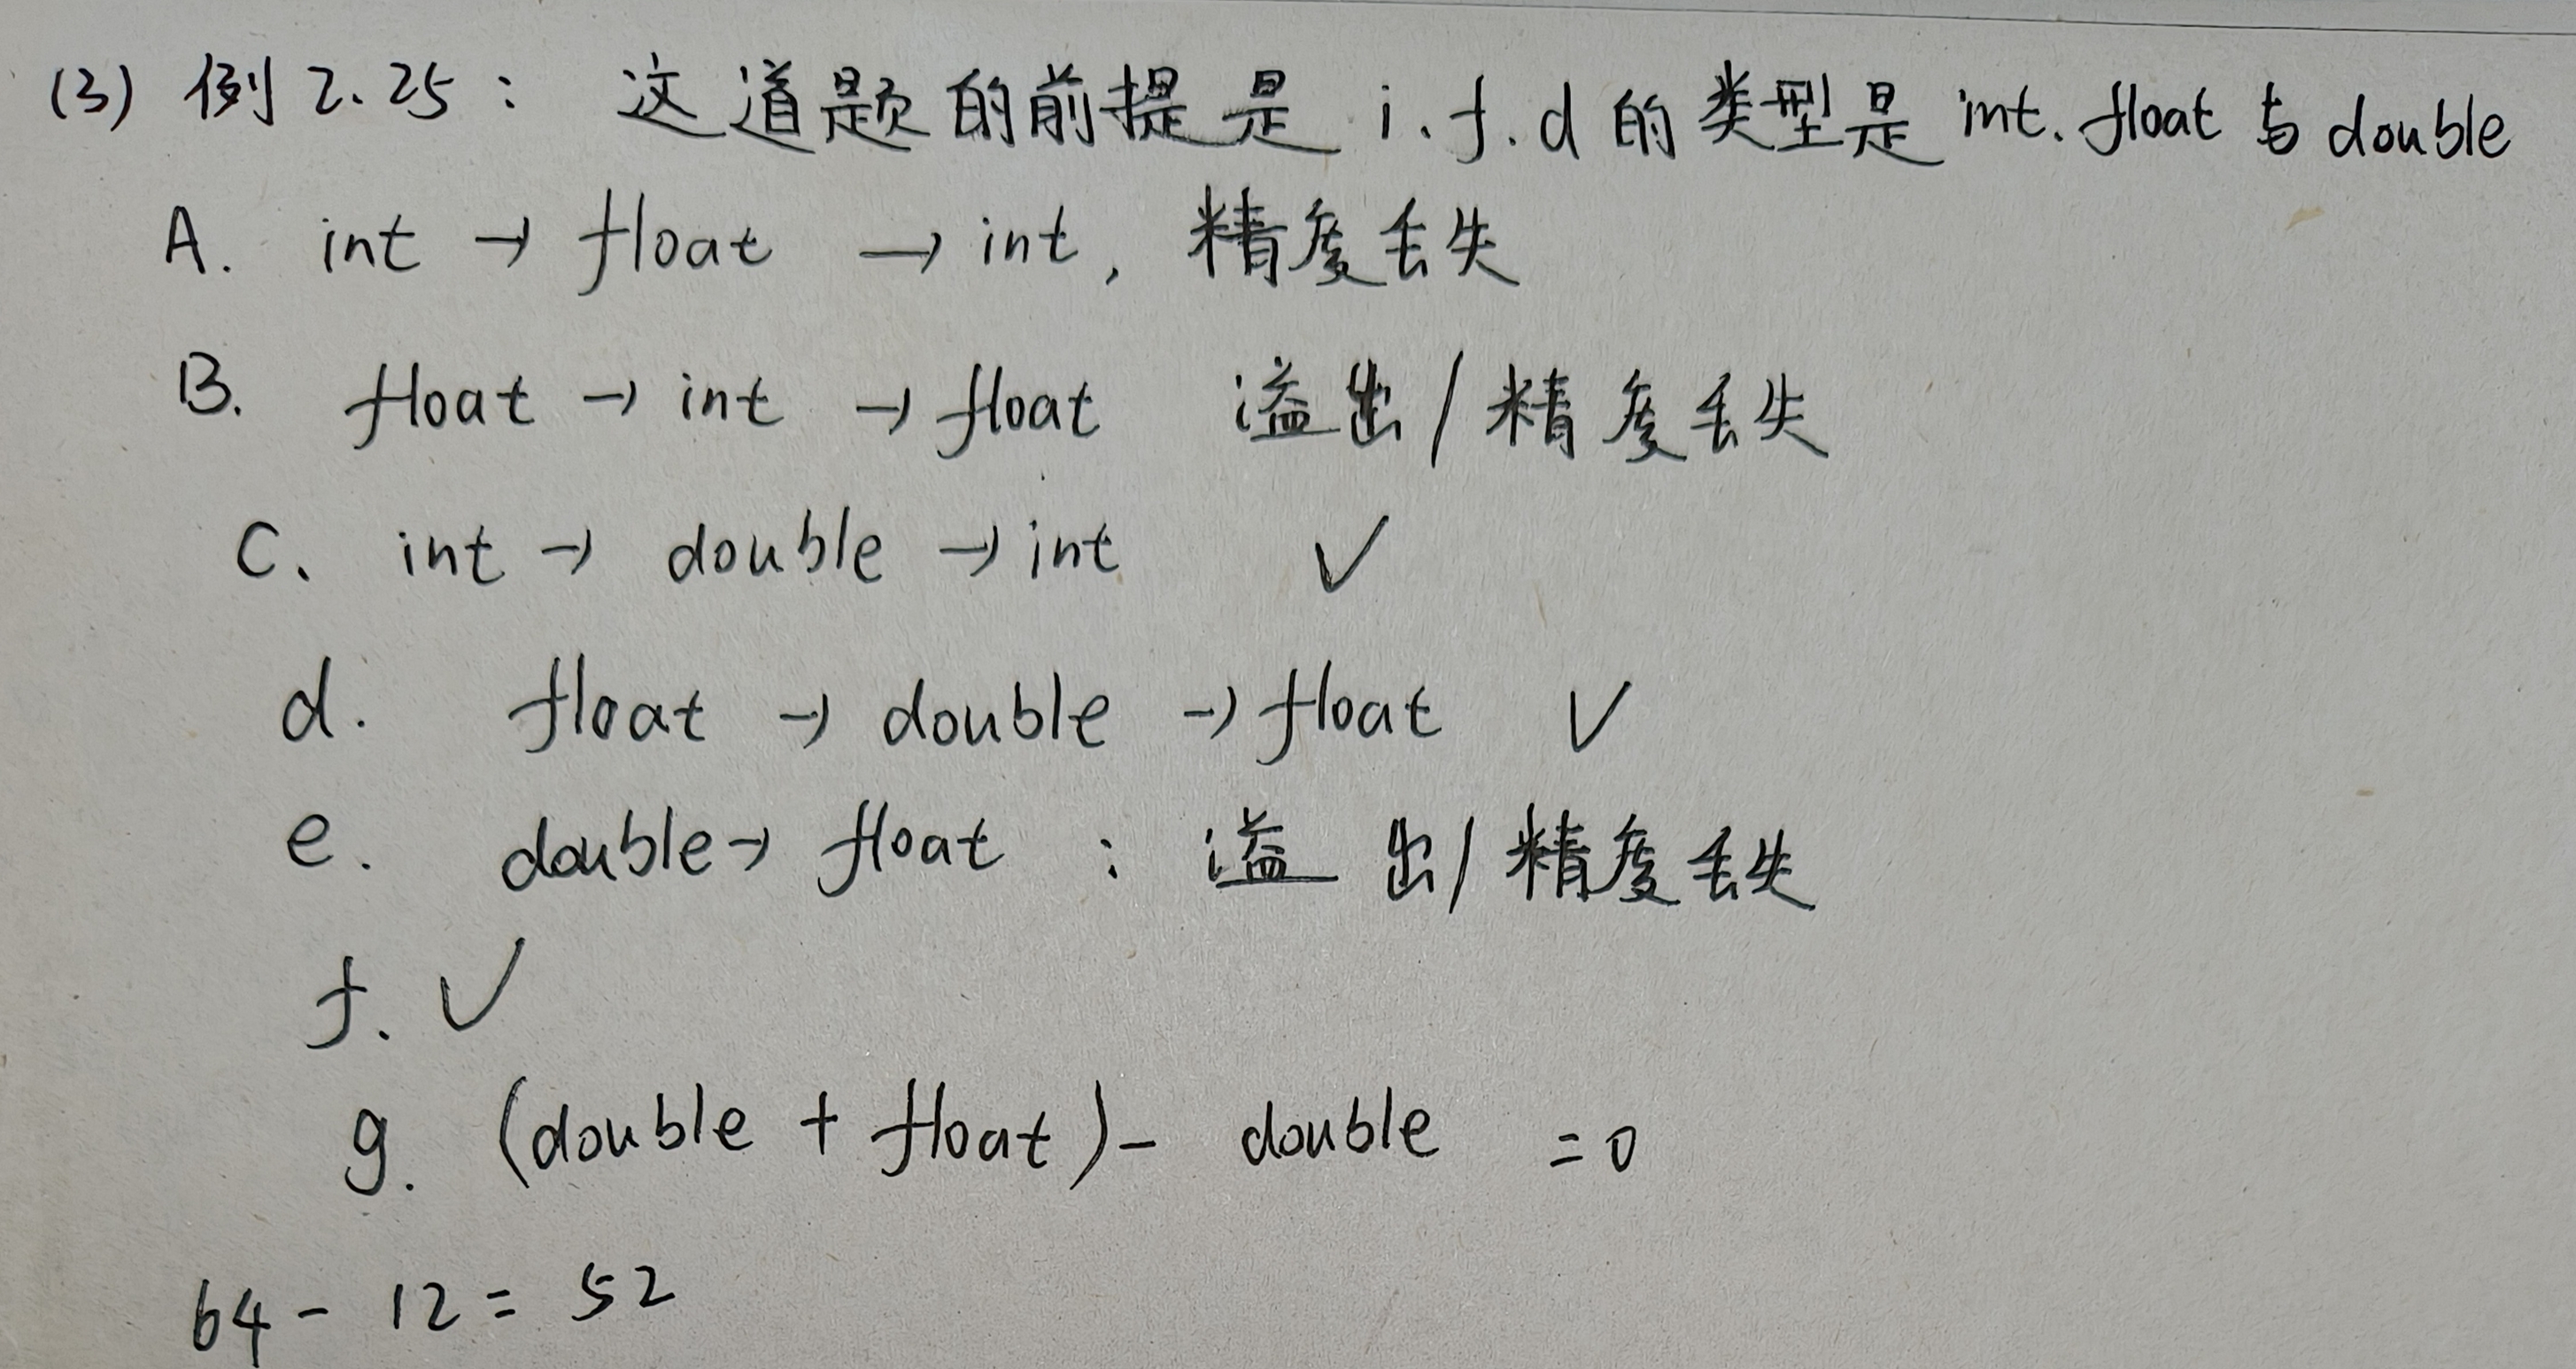 (3) 例 2.25： 这道题的前提是 i.f.d 的类型是 int.float 与 double
A. int → float → int, 精度丢失
B. float → int → float 溢出/精度丢失
C. int → double → int ✓
d. float → double → float ✓
e. double → float : 溢出/精度丢失
f. ✓
g. (double + float) - double = 0
64 - 12 = 52